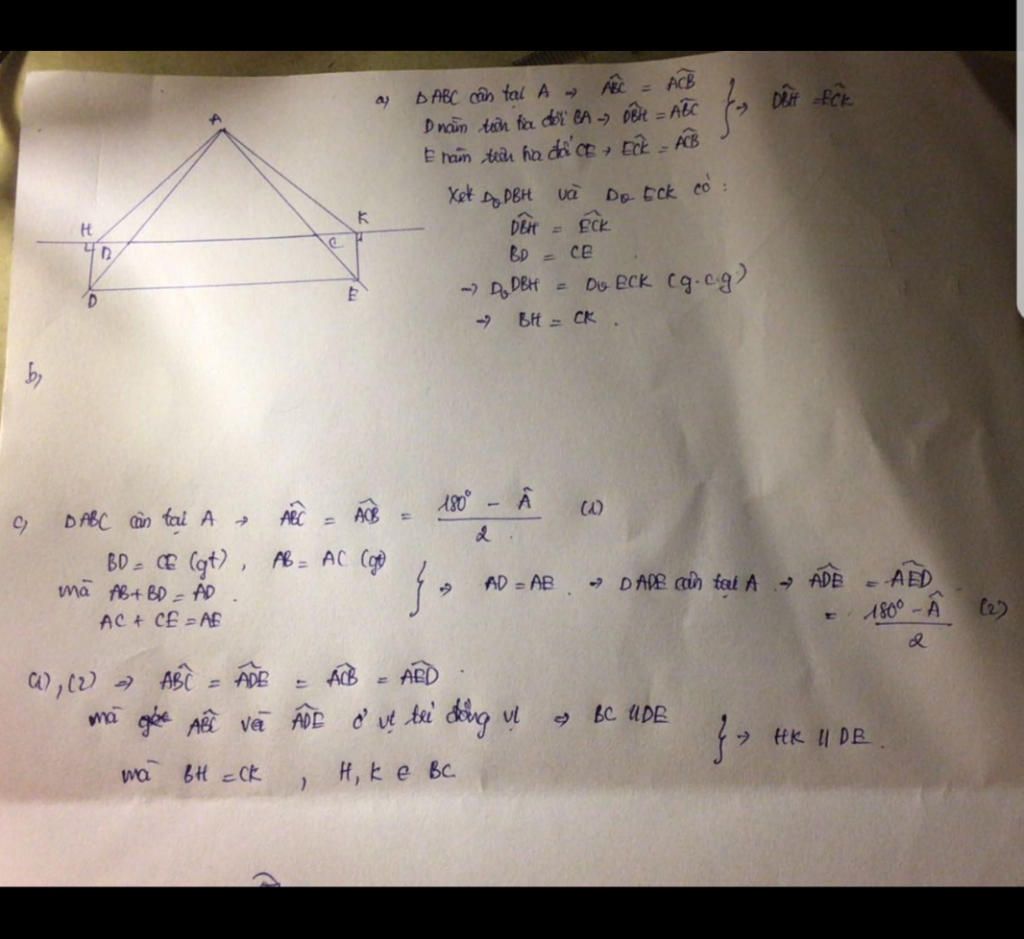 A
H
B
C
K
D
E
a) ΔABC cân tại A → ABC^ = ACB^
D nằm trên tia đối BA → DBH^ = ABC^
E nằm trên tia đối CE → ECK^ = ACB^
} → DBH^ = ECK^
Xét Δ DBH và Δ ECK có :
DBH^ = ECK^
BD = CE
→ Δ DBH = Δ ECK (g.c.g)
→ BH = CK .
b,
c, ΔABC cân tại A → ABC^ = ACB^ = (180° - Â)/2 (1)
BD = CE (gt), AB = AC (gt)
mà AB + BD = AD
AC + CE = AE
} → AD = AE . → ΔADE cân tại A . → ADE^ = AED^
= (180° - Â)/2 (2)
(1), (2) → ABC^ = ADE^ = ACB^ = AED^ .
mà ABC^ và ADE^ ở vị trí đồng vị → BC // DE
mà BH = CK , H, K ∈ BC
} → HK // DE .